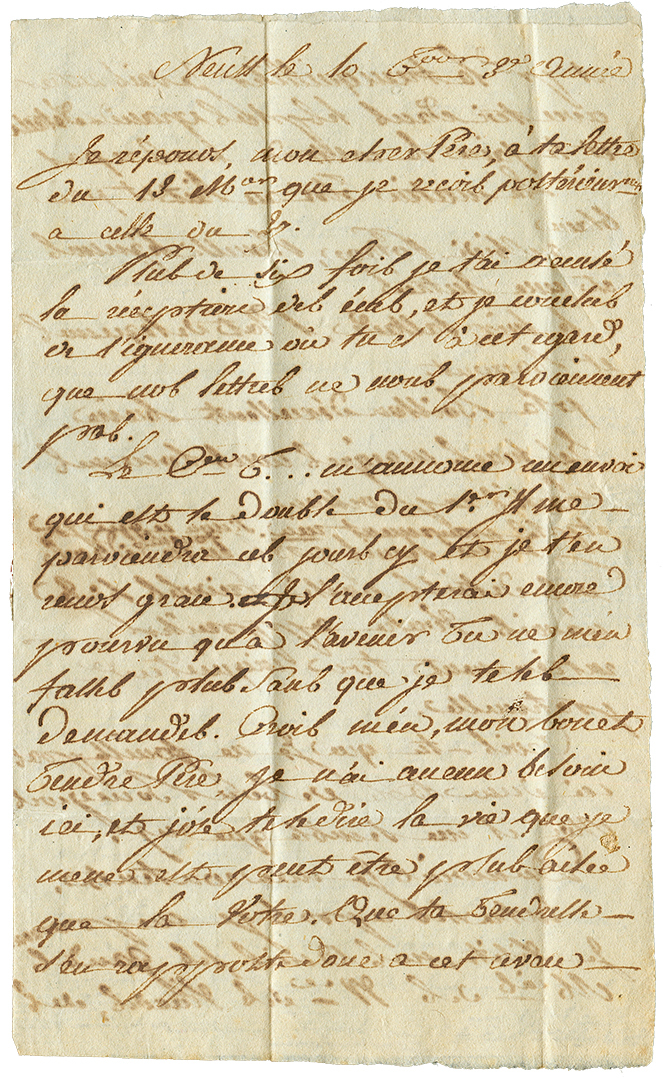 Neuss le 10 3e année
Je réponds, mon cher Père, à ta lettre
du 12 que je reçois postérieurem
a celle du 27.
Plus de six fois je t'ai accusé
la réception des écus, et je conclus
de l'ignorance où tu es à cet egard,
que nos lettres ne nous parviennent
pas.
Le Cen T... m'annonce un envoi
qui est le double du 1er. Il me
parviendra ces jours cy et je t'en
rends grace. Je l'accepterai encore
pourvu qu'à l'avenir tu ne m'en
fasses plus sans que je te les
demandes. Crois m'en, mon bon et
tendre Père, je n'ai aucun besoin
ici, et j'ose te le dire la vie que je
mene est peut être plus aisée
que la Vôtre. Que ta tendresse
s'en rapporte donc a cet aveu